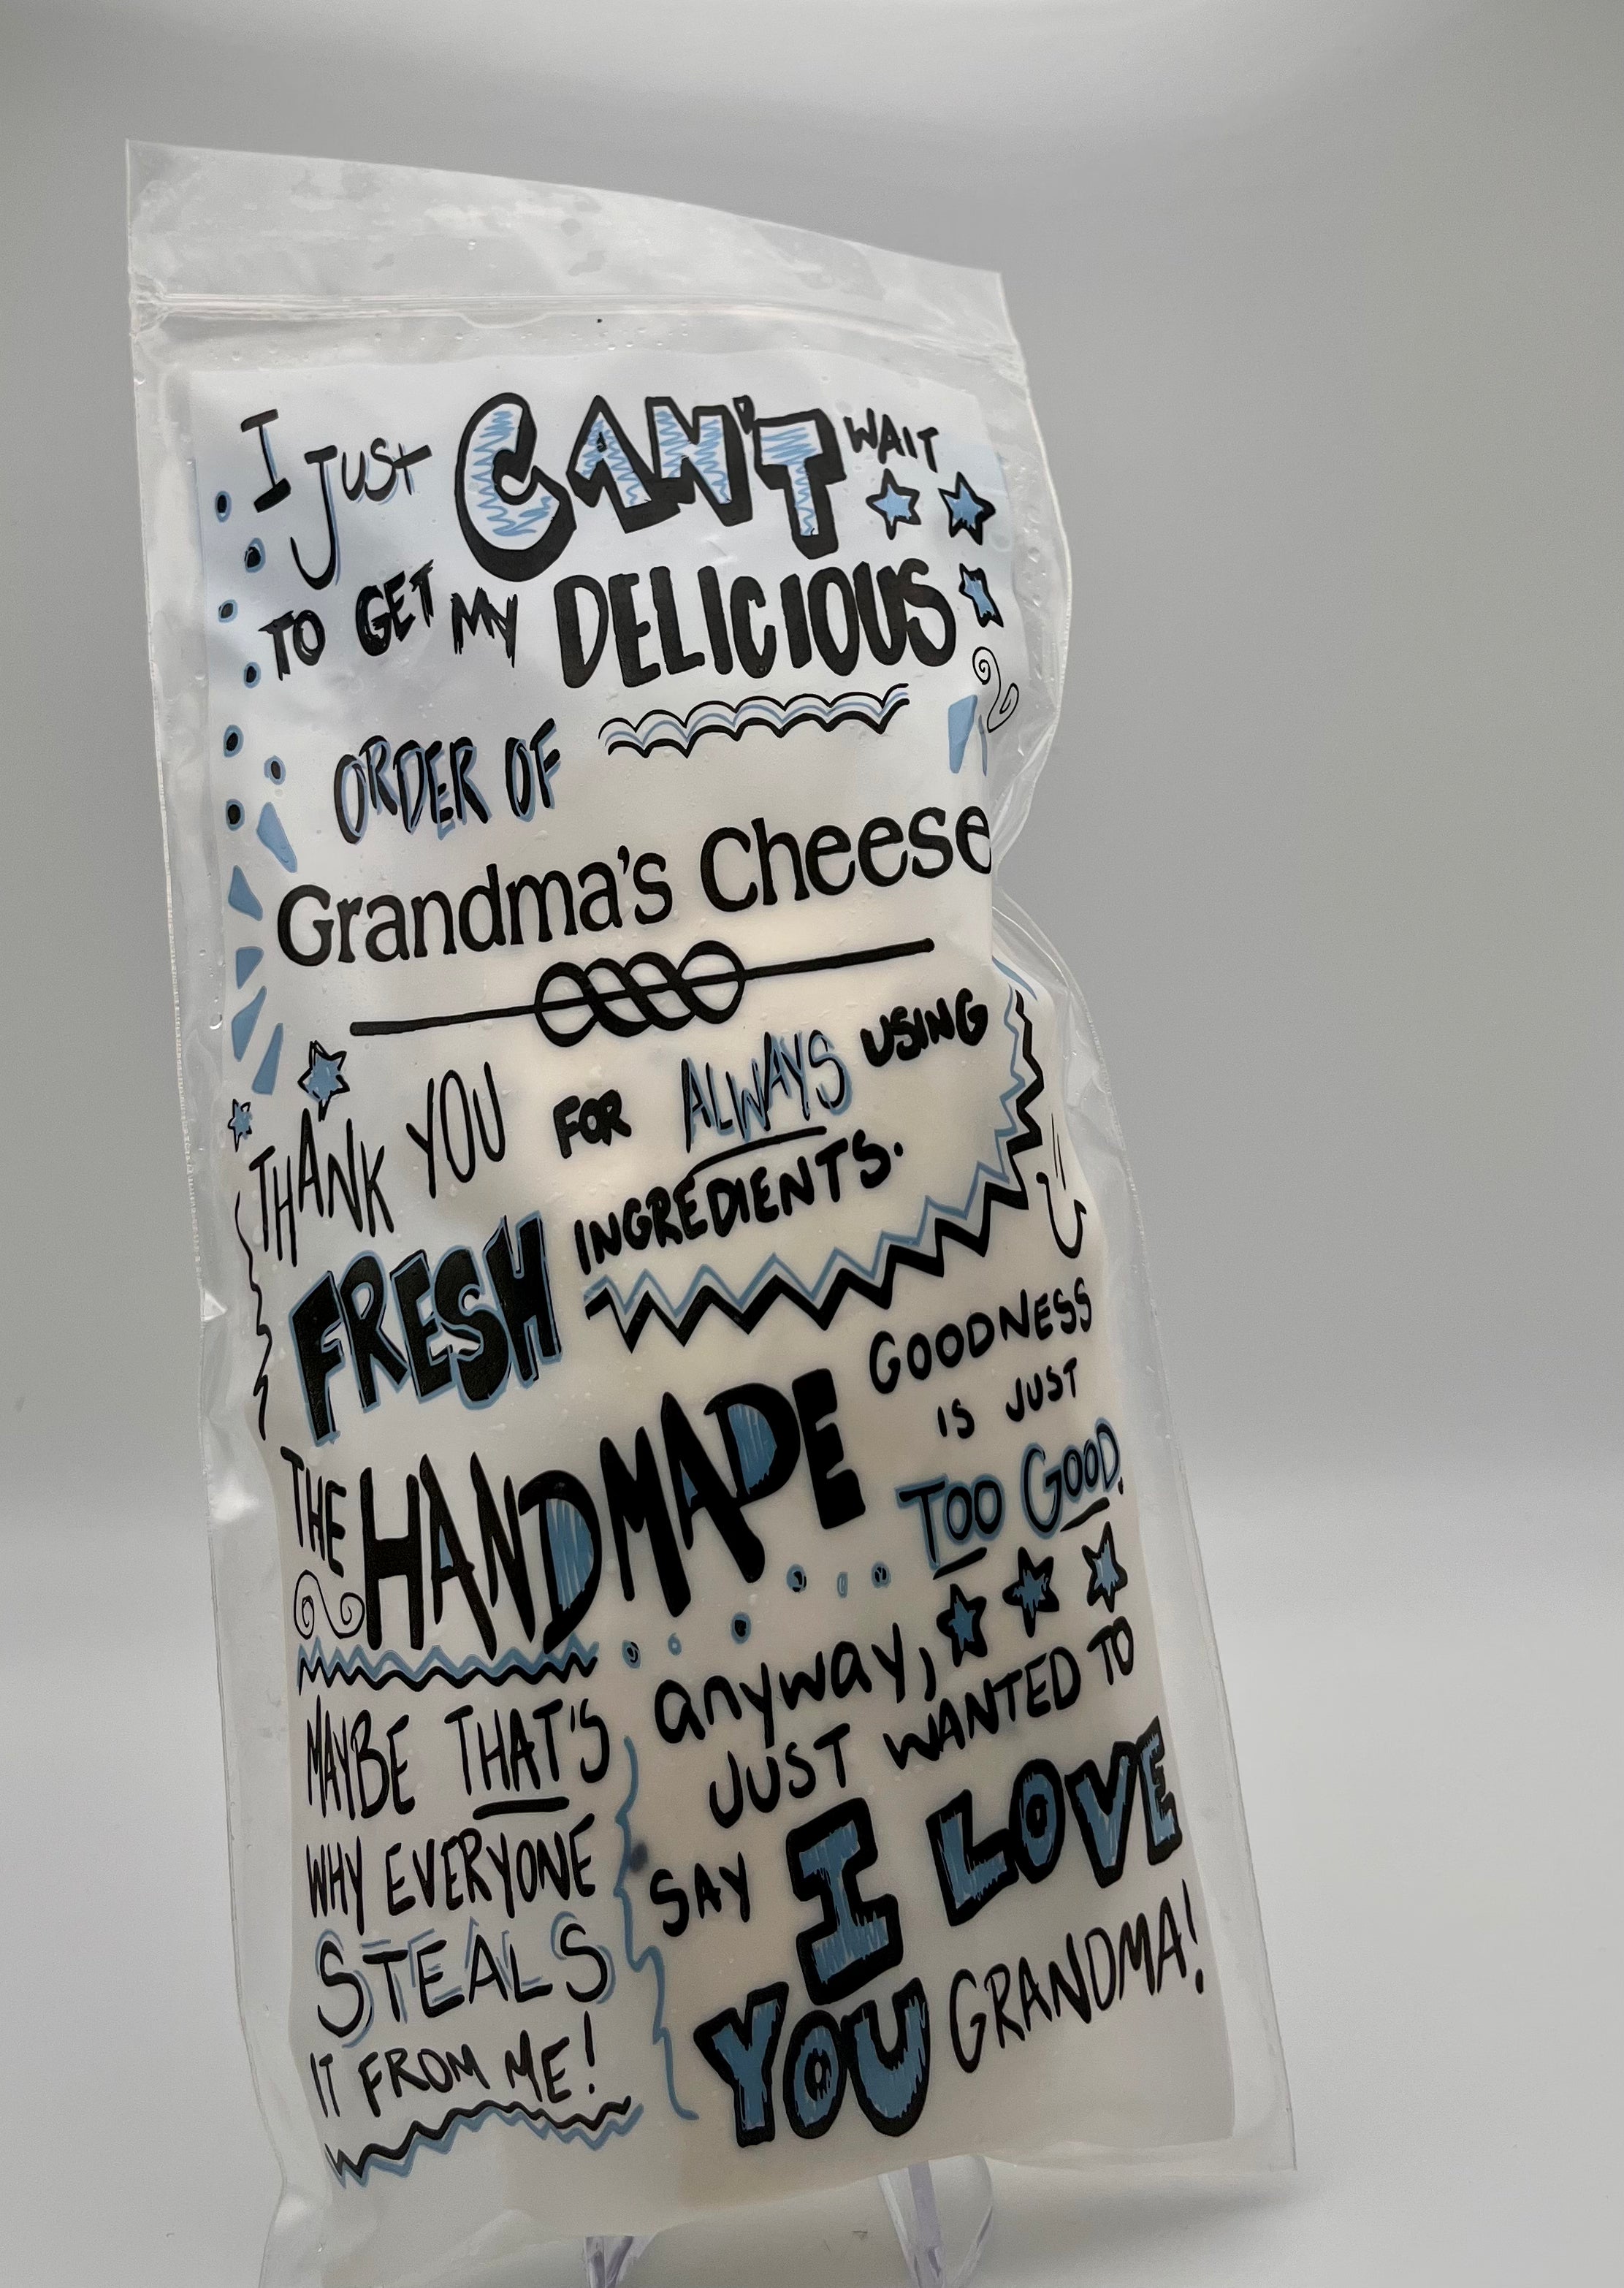 I JUST CAN'T WAIT
TO GET MY DELICIOUS
ORDER OF
Grandma's Cheese
THANK YOU FOR ALWAYS USING
FRESH INGREDIENTS.
THE HANDMADE GOODNESS
IS JUST
TOO GOOD.
MAYBE THAT'S
WHY EVERYONE
STEALS
IT FROM ME!
anyway,
JUST WANTED TO
SAY I LOVE
YOU GRANDMA!